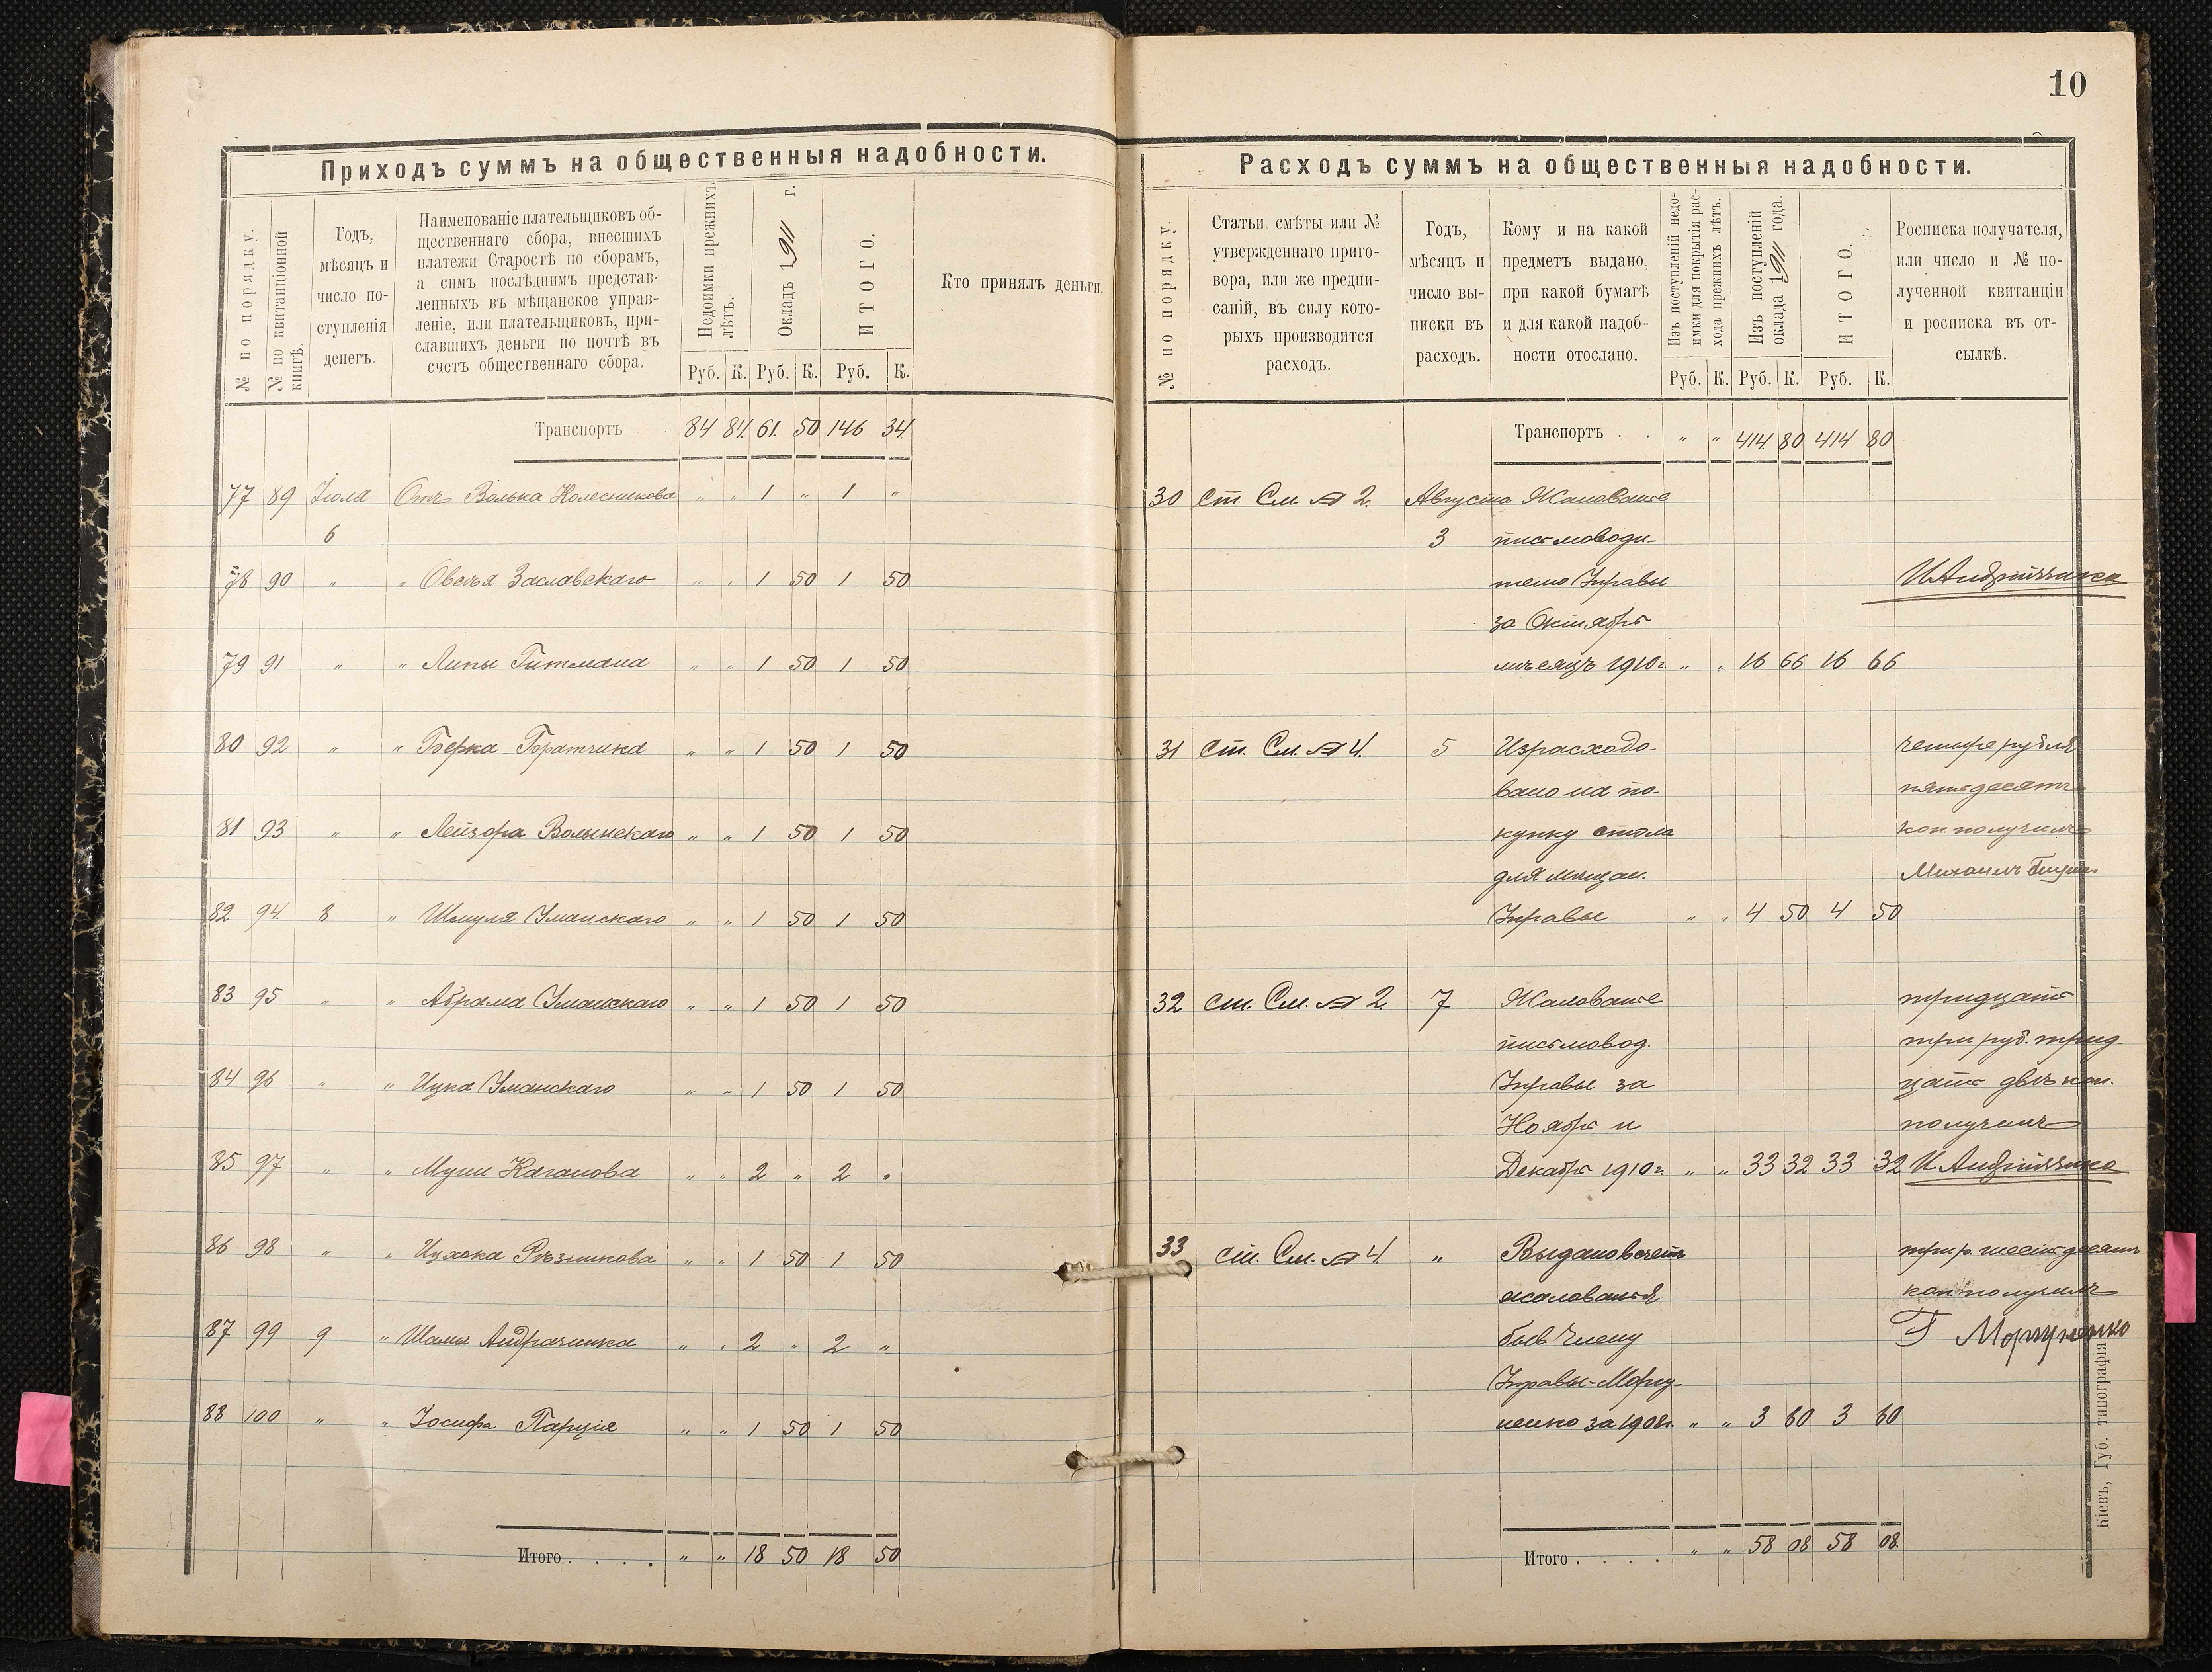 10
Приходъ суммъ на общественныя надобности.
№ по порядку.
№ по квитанціонной книгѣ.
Годъ,
мѣсяцъ и
число по-
ступленія
денегъ.
Наименованіе плательщиковъ об-
щественнаго сбора, внесшихъ
платежи Старостѣ по сборамъ,
а симъ послѣднимъ представ-
ленныхъ въ мѣщанское управ-
леніе, или плательщиковъ, при-
славшихъ деньги по почтѣ въ
счетъ общественнаго сбора.
Недоимки прежнихъ лѣтъ.
Окладъ 1911 г.
ИТОГО.
Кто принялъ деньги.
Руб. К. Руб. К. Руб. К.
Транспортъ 84 84 61 50 146 34
77 89 Іюля Отъ Волька Колесникова " " 1 " 1 "
6
78 90 " " Овсѣя Заславскаго " " 1 50 1 50
79 91 " " Липы Гитмана " " 1 50 1 50
80 92 " " Берка Братчика " " 1 50 1 50
81 93 " " Лейзора Волынскаго " " 1 50 1 50
82 94 8 " Шмуля Уманскаго " " 1 50 1 50
83 95 " " Абрама Уманскаго " " 1 50 1 50
84 96 " " Ицка Уманскаго " " 1 50 1 50
85 97 " " Муни Каганова " " 2 " 2 "
86 98 " " Ицхока Рѣзникова " " 1 50 1 50
87 99 9 " Андрачника " " 2 " 2 "
88 100 " " Іосифа Парція " " 1 50 1 50
Итого . . . . " " 18 50 18 50
Расходъ суммъ на общественныя надобности.
№ по порядку.
Статьи смѣты или №
утвержденнаго приго-
вора, или же предпи-
саній, въ силу кото-
рыхъ производится
расходъ.
Годъ,
мѣсяцъ и
число вы-
писки въ
расходъ.
Кому и на какой
предметъ выдано,
при какой бумагѣ
и для какой надоб-
ности отослано.
Изъ поступленій недо-
имки для покрытія рас-
хода прежнихъ лѣтъ.
Изъ поступленій
оклада 1911 года.
ИТОГО.
Росписка получателя,
или число и № по-
лученной квитанціи
и росписка въ от-
сылкѣ.
Руб. К. Руб. К. Руб. К.
Транспортъ . . " " 414 80 414 80
30 ст. См. № 2. Августа Жалованье
3 письмоводи-
телю Управы
за Октябрь
мѣсяцъ 1910 г. " " 16 66 16 66
31 ст. См. № 4. 5 Израсходо- четыре рубля
вано на по- пятьдесятъ
купку стола коп. получилъ
для мѣщан. Михаилъ
Управы " " 4 50 4 50
32 ст. См. № 2. 7 Жалованье тридцать
письмовод. три руб. трид-
Управы за цать двѣ коп.
Ноябрь и получилъ
Декабрь 1910 г. " " 33 32 33 32
33 ст. См. № 4. " Выдано въ счетъ три р. шестьдесятъ
жалованья коп. получилъ
быв. Члену Г Моргуненко
Управы-Моргу-
ненко за 1908 г. " " 3 60 3 60
Итого . . . . " " 58 08 58 08
Кіевъ, Губ. типографія